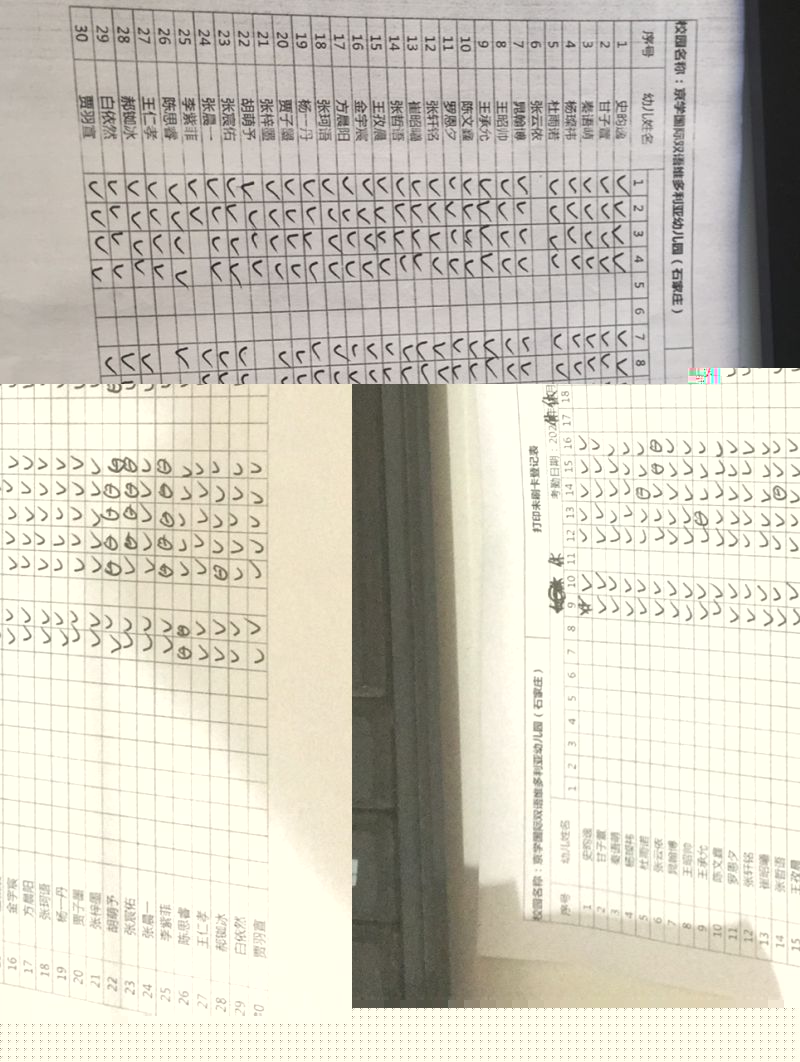 校园名称：京学国际双语维多利亚幼儿园（石家庄）
序号 幼儿姓名 1 2 3 4 5 6 7 8
1 史昀逸
2 甘子萱
3 秦语萌
4 杨璨祎
5 杜雨诺
6 张云依
7 晁翰博
8 王昭帅
9 王承允
10 陈文鑫
11 罗恩夕
12 张轩铭
13 崔昭曦
14 张哲语
15 王孜晨
16 金宇宸
17 方晨阳
18 张珂语
19 杨一丹
20 贾子墨
21 张梓墨
22 胡萌予
23 张宸佑
24 张晨一
25 李紫菲
26 陈思睿
27 王仁孝
28 郝铷冰
29 白依然
30 贾羽宣
16 金宇宸
17 方晨阳
18 张珂语
19 杨一丹
20 贾子墨
21 张梓墨
22 胡萌予
23 张宸佑
24 张晨一
25 李紫菲
26 陈思睿
27 王仁孝
28 郝铷冰
29 白依然
贾羽宣
校园名称：京学国际双语维多利亚幼儿园（石家庄） 打印未刷卡登记表
考勤日期
休 休
序号 幼儿姓名 1 2 3 4 5 6 7 8 9 10 11 12 13 14 15 16 17 18
1 史昀逸
2 甘子萱
3 秦语萌
4 杨璨祎
5 杜雨诺
6 张云依
7 晁翰博
8 王昭帅
9 王承允
10 陈文鑫
11 罗恩夕
12 张轩铭
13 崔昭曦
14 张哲语
15 王孜晨